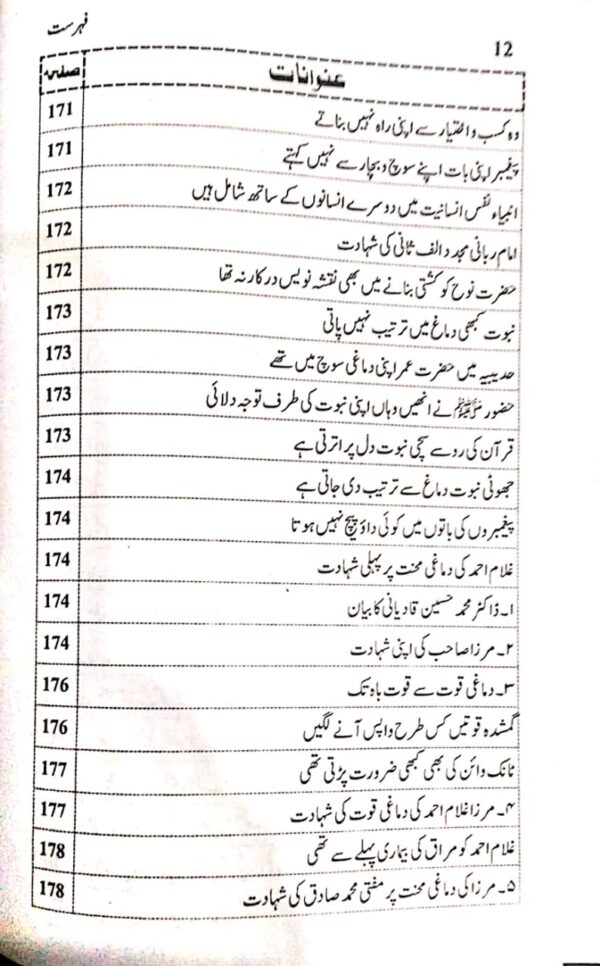 12 فہرست
عنوانات صفحہ
وہ کسب و اختیار سے اپنی راہ نہیں بناتے 171
پیغمبر اپنی بات اپنے سوچ و بچار سے نہیں کہتے 171
انبیاء نفس انسانیت میں دوسرے انسانوں کے ساتھ شامل ہیں 172
امام ربانی مجدد الف ثانی کی شہادت 172
حضرت نوح کو کشتی بنانے میں بھی نقشہ نویس درکار نہ تھا 172
نبوت کبھی دماغ میں ترتیب نہیں پاتی 173
حدیبیہ میں حضرت عمر اپنی دماغی سوچ میں تھے 173
حضور ﷺ نے انھیں وہاں اپنی نبوت کی طرف توجہ دلائی 173
قرآن کی رو سے سچی نبوت دل پر اترتی ہے 173
جھوٹی نبوت دماغ سے ترتیب دی جاتی ہے 174
پیغمبروں کی باتوں میں کوئی داؤ پیچ نہیں ہوتا 174
غلام احمد کی دماغی محنت پر پہلی شہادت 174
۱۔ ڈاکٹر محمد حسین قادیانی کا بیان 174
۲۔ مرزا صاحب کی اپنی شہادت 174
۳۔ دماغی قوت سے قوت باہ تک 176
گمشدہ قوتیں کس طرح واپس آنے لگیں 176
ٹانک وائن کی بھی کبھی ضرورت پڑتی تھی 177
۴۔ مرزا غلام احمد کی دماغی قوت کی شہادت 177
غلام احمد کو مراق کی بیماری پہلے سے تھی 178
۵۔ مرزا کی دماغی محنت پر مفتی محمد صادق کی شہادت 178